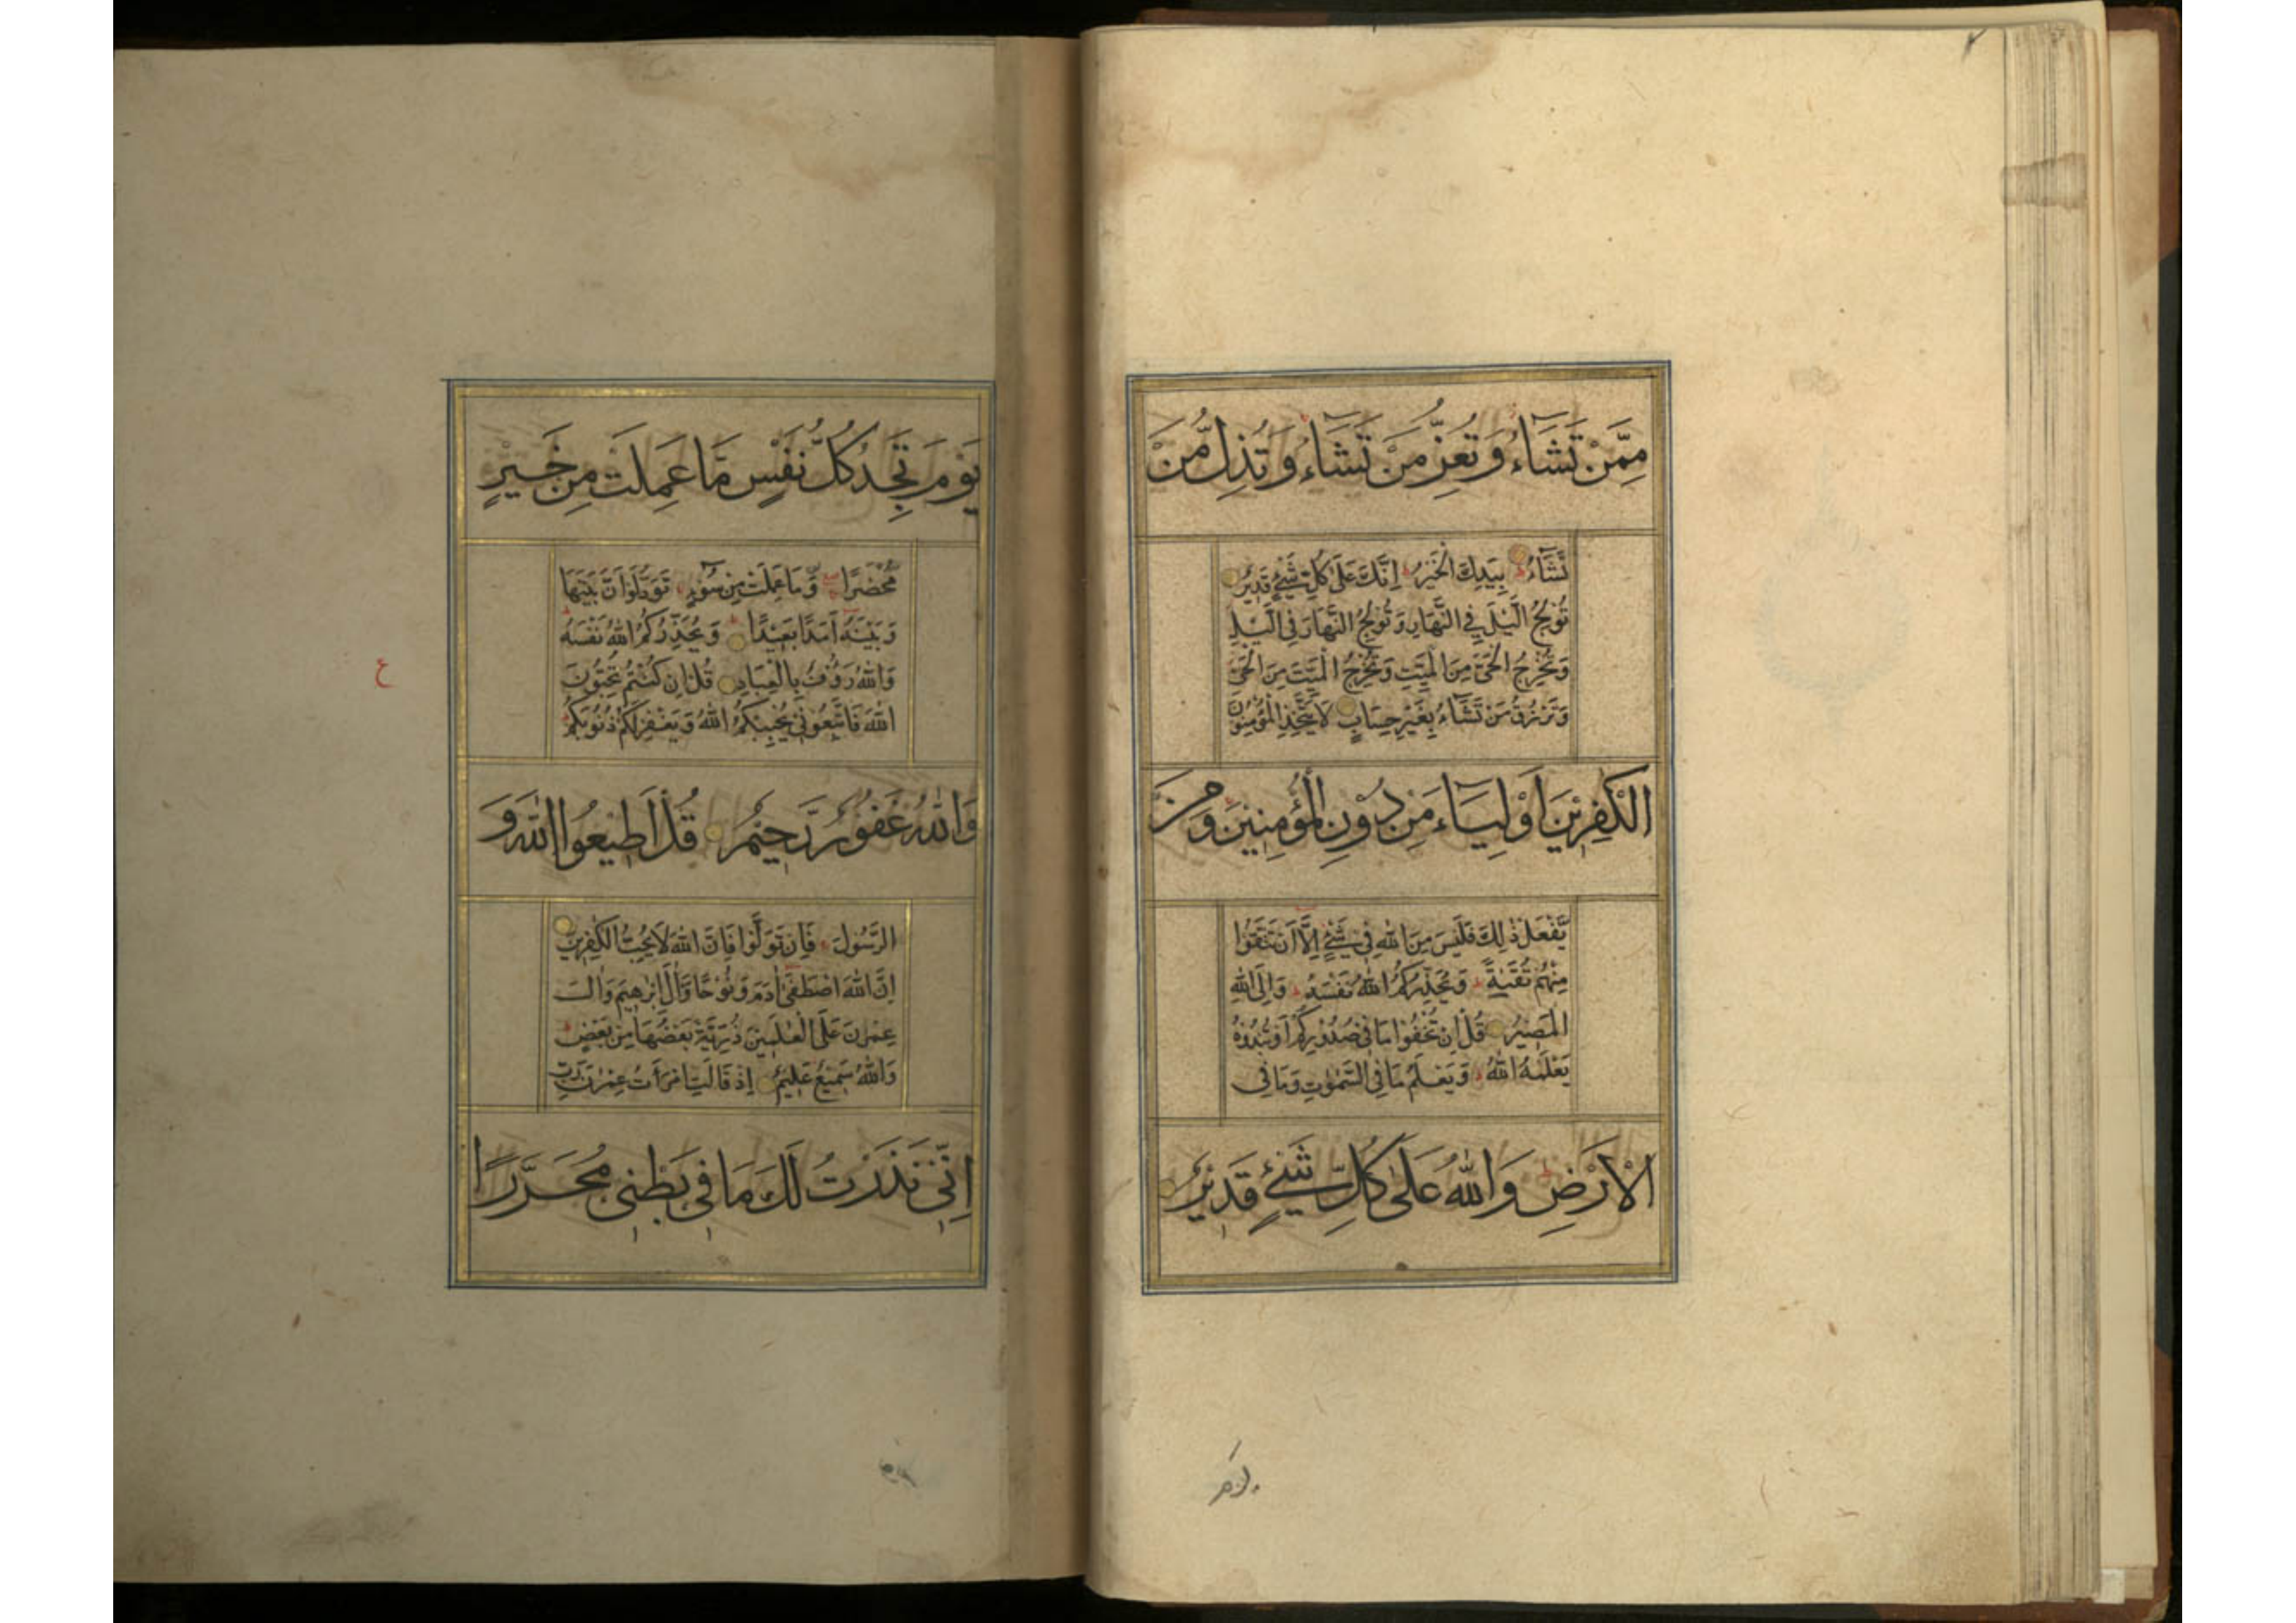 مِمَّنْ تَشَآءُ وَتُعِزُّ مَنْ تَشَآءُ وَتُذِلُّ مَنْ
تَشَآءُ بِيَدِكَ الْخَيْرُ اِنَّكَ عَلٰى كُلِّ شَيْءٍ قَدِيْرٌ
تُوْلِجُ الَّيْلَ فِي النَّهَارِ وَتُوْلِجُ النَّهَارَ فِي الَّيْلِ
وَتُخْرِجُ الْحَيَّ مِنَ الْمَيِّتِ وَتُخْرِجُ الْمَيِّتَ مِنَ الْحَيِّ
وَتَرْزُقُ مَنْ تَشَآءُ بِغَيْرِ حِسَابٍ لَا يَتَّخِذِ الْمُؤْمِنُوْنَ
الْكٰفِرِيْنَ اَوْلِيَآءَ مِنْ دُوْنِ الْمُؤْمِنِيْنَ وَمَنْ
يَّفْعَلْ ذٰلِكَ فَلَيْسَ مِنَ اللّٰهِ فِيْ شَيْءٍ اِلَّا اَنْ تَتَّقُوْا
مِنْهُمْ تُقٰىةً وَيُحَذِّرُكُمُ اللّٰهُ نَفْسَهٗ وَاِلَى اللّٰهِ
الْمَصِيْرُ قُلْ اِنْ تُخْفُوْا مَا فِيْ صُدُوْرِكُمْ اَوْ تُبْدُوْهُ
يَعْلَمْهُ اللّٰهُ وَيَعْلَمُ مَا فِي السَّمٰوٰتِ وَمَا فِي
الْاَرْضِ وَاللّٰهُ عَلٰى كُلِّ شَيْءٍ قَدِيْرٌ
يَوْمَ تَجِدُ كُلُّ نَفْسٍ مَّا عَمِلَتْ مِنْ خَيْرٍ
مُّحْضَرًا وَّمَا عَمِلَتْ مِنْ سُوْٓءٍ تَوَدُّ لَوْ اَنَّ بَيْنَهَا
وَبَيْنَهٗ اَمَدًا بَعِيْدًا وَيُحَذِّرُكُمُ اللّٰهُ نَفْسَهٗ
وَاللّٰهُ رَءُوْفٌ بِالْعِبَادِ قُلْ اِنْ كُنْتُمْ تُحِبُّوْنَ
اللّٰهَ فَاتَّبِعُوْنِيْ يُحْبِبْكُمُ اللّٰهُ وَيَغْفِرْ لَكُمْ ذُنُوْبَكُمْ
ع
وَاللّٰهُ غَفُوْرٌ رَّحِيْمٌ قُلْ اَطِيْعُوا اللّٰهَ وَ
الرَّسُوْلَ فَاِنْ تَوَلَّوْا فَاِنَّ اللّٰهَ لَا يُحِبُّ الْكٰفِرِيْنَ
اِنَّ اللّٰهَ اصْطَفٰى اٰدَمَ وَنُوْحًا وَّاٰلَ اِبْرٰهِيْمَ وَاٰلَ
عِمْرٰنَ عَلَى الْعٰلَمِيْنَ ذُرِّيَّةً بَعْضُهَا مِنْ بَعْضٍ
وَاللّٰهُ سَمِيْعٌ عَلِيْمٌ اِذْ قَالَتِ امْرَاَتُ عِمْرٰنَ رَبِّ
اِنِّيْ نَذَرْتُ لَكَ مَا فِيْ بَطْنِيْ مُحَرَّرًا